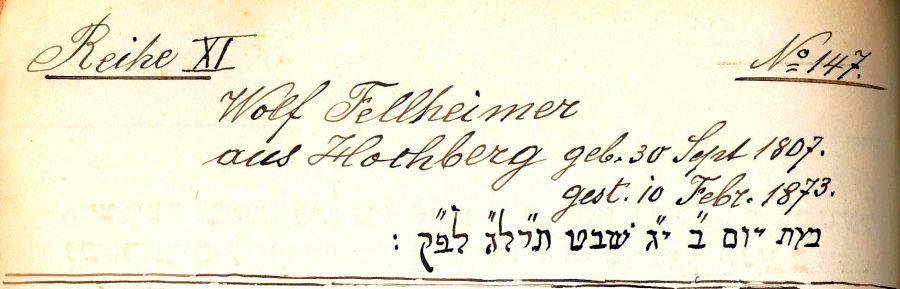 Reihe XI
No 147.
Wolf Fellheimer
aus Hochberg geb. 30 Sept 1807.
gest. 10 Febr. 1873.
מת יום ב״ י״ג שבט תרל״ג לפ״ק :